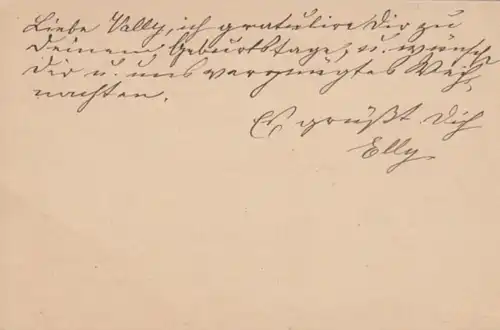 Liebe Vally, ich gratulire Dir zu
Deinem Geburtstage, u. wünsch
Dir u. uns vergnügtes Weih-
nachten.
Es grüßt Dich
Elly